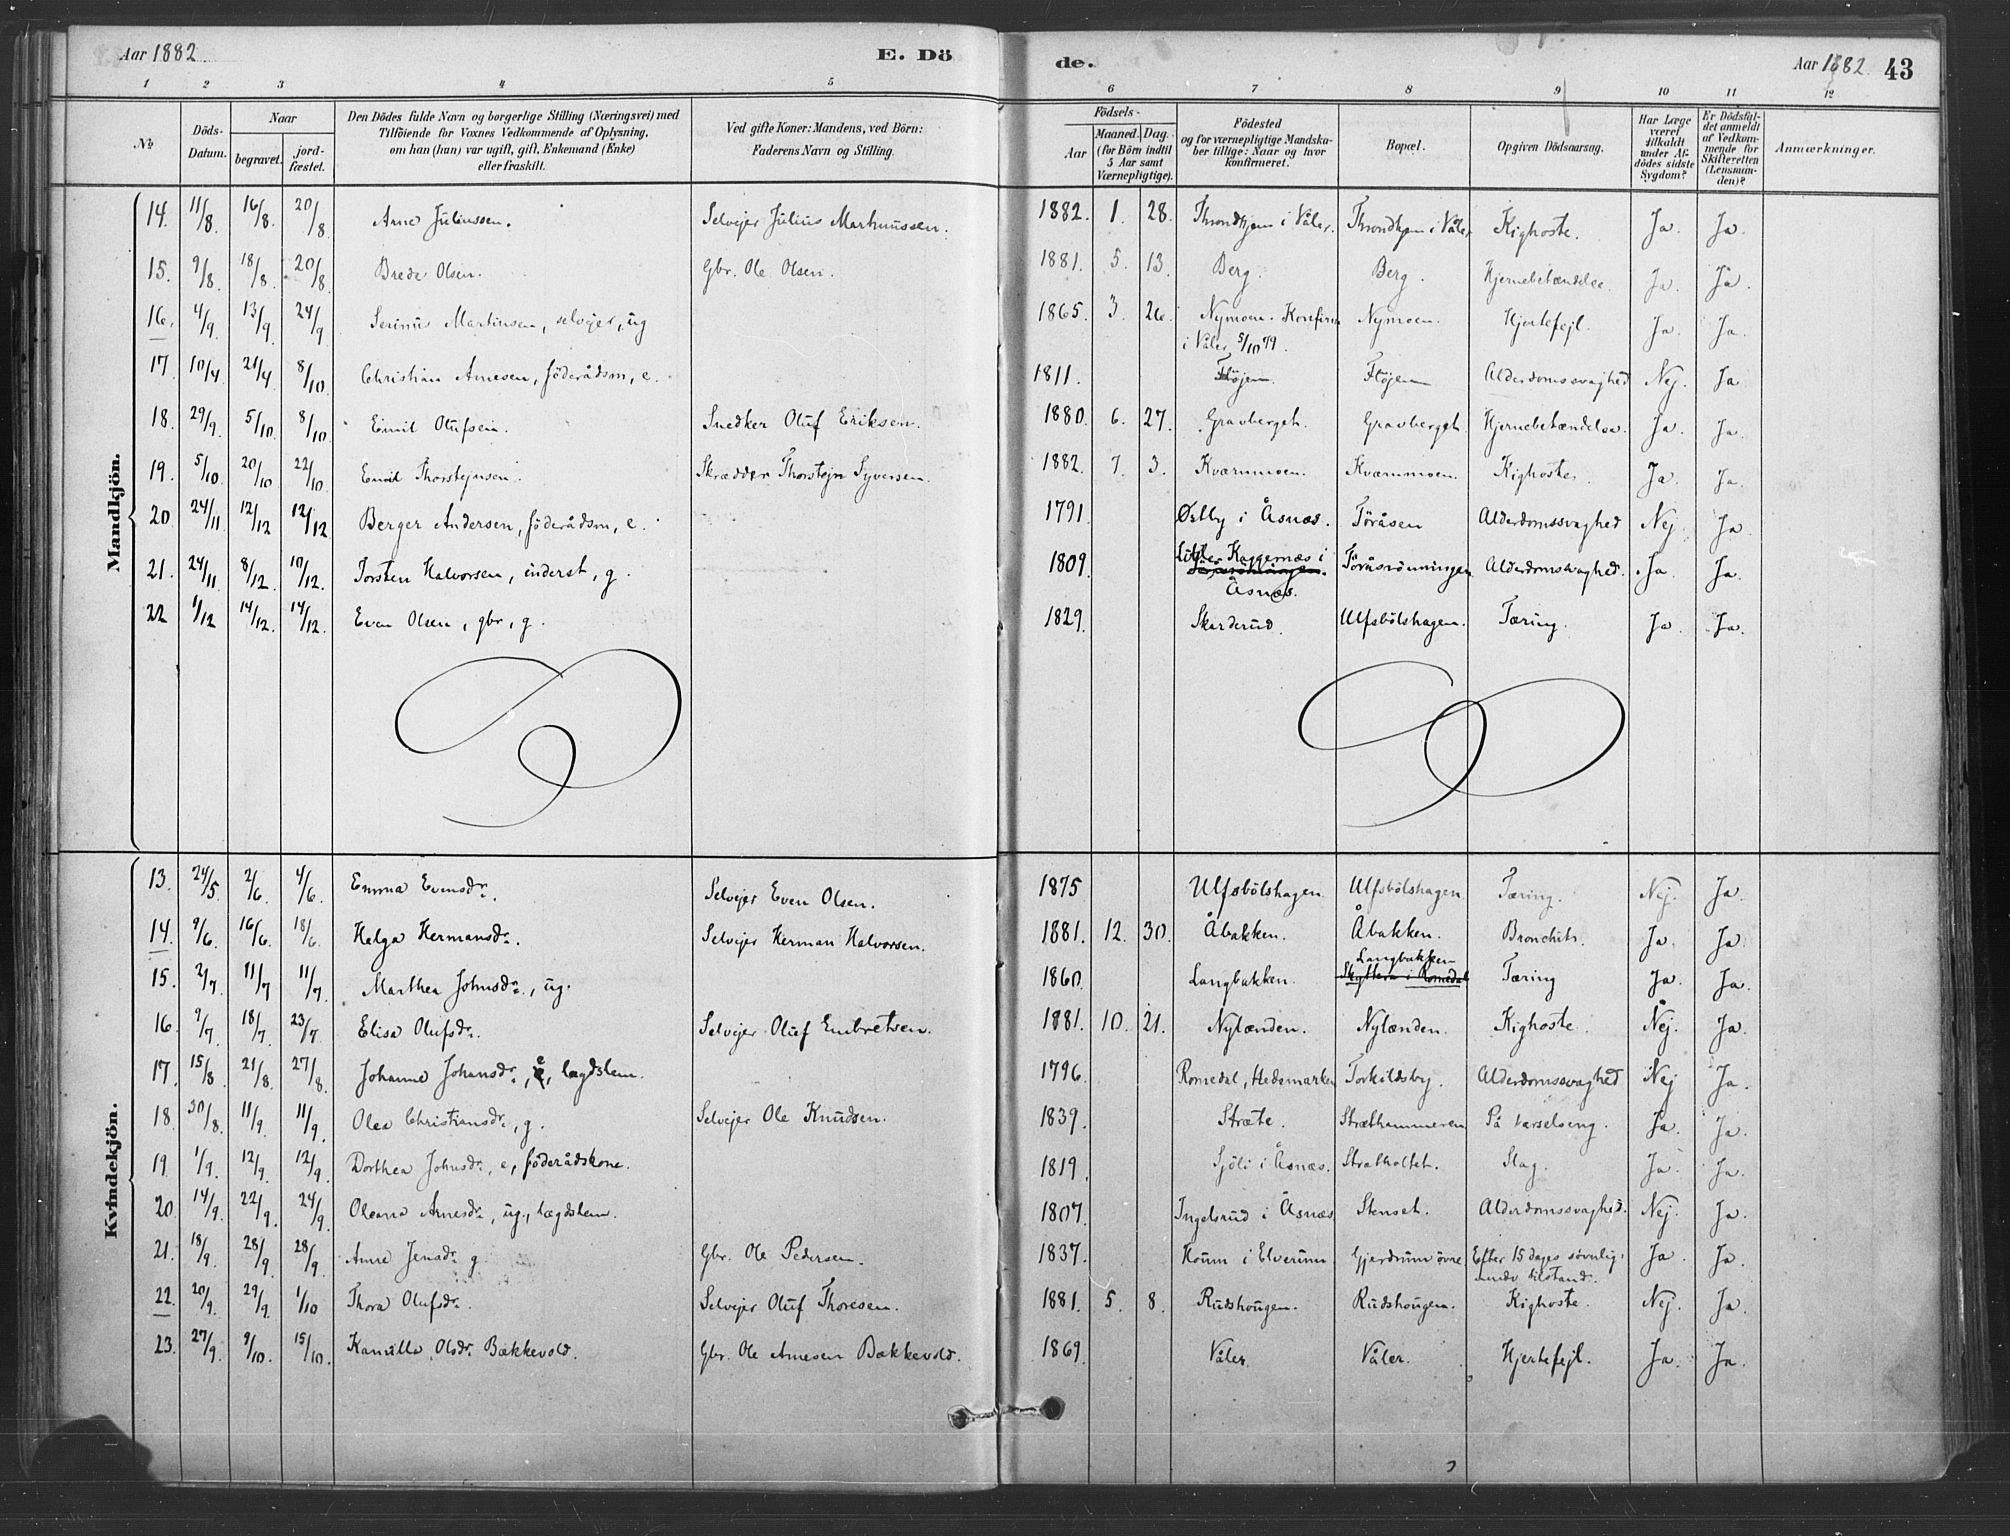 Aar 1882. E. Dö de. Aar 1882. 43
1 2 3 4 5 6 7 8 9 10 11 12
№ Döds-Datum. Naar begravet. jord-fæstet. Den Dödes fulde Navn og borgerlige Stilling (Næringsvei) med Tilföiende for Voxnes Vedkommende af Oplysning, om han (hun) var ugift, gift, Enkemand (Enke) eller fraskilt. Ved gifte Koner: Mandens, ved Börn: Faderens Navn og Stilling. Födsels- Aar Maaned. Dag. (for Börn indtil 5 Aar samt Værnepligtige). Födested og for værnepligtige Mandskaber tillige: Naar og hvor konfirmeret. Bopæl. Opgiven Dödsaarsag. Har Læge været tilkaldt under Afdödes sidste Sygdom? Er Dödsfaldet anmeldt af Vedkommende for Skifteretten (Lensmanden)? Anmærkninger.
Mandkjön.
14. 11/8 16/8. 20/8 Arne Juliussen. Selvejer Julius Marthinussen. 1882. 1. 28. Throndhjem i Våler. Throndhjem i Våler Kighoste. Ja. Ja.
15. 9/8 18/8. 20/8 Brede Olsen. Gbr. Ole Olsen. 1881. 5. 13. Berg. Berg. Hjernebetændelse. Ja. Ja.
16. 4/9. 13/9 24/9 Serinus Martinsen, selvejer, ug 1865 3 26. Nymoen. Konfirm. Nymoen. Hjertefejl. Ja. Ja.
i Våler 5/10 79.
17. 10/4 21/4. 8/10. Christian Arnesen, föderådsm, e. 1811. Fløjen. Fløjen Alderdomssvaghed Nej. Ja
18. 29/9. 5/10. 8/10 Emil Olufsen. Snedker Oluf Eriksen. 1880 6. 27. Gravberget. Gravberget. Hjernebetændelse. Ja. Ja.
19. 5/10. 20/10 22/10 Emil Thorstejnsen. Skrædder Thorstejn Syversen. 1882 7. 3. Kværnmoen. Kværnmoen. Kighoste. Ja. Ja.
20 24/11. 12/12 12/12 Berger Andersen, föderådsm, e. 1791 Østby i Åsnæs. Töråsen Alderdomssvaghed Nej. Ja
21. 24/11 8/12. 10/12. Torsten Halvorsen, inderst, g. 1809 Kaggernæs i Töråsrönningen Alderdomssvaghed. Ja. Ja.
Åsnæs.
22 1/12 14/12. 14/12. Even Olsen, gbr, g. 1829. Skarderud. Ulfsbölshagen. Tæring. Ja. Ja.
Kvindekjön.
13. 24/5 2/6 4/6. Emma Evensdr. Selvejer Even Olsen. 1875 Ulfsbölshagen. Ulfsbölshagen Tæring. Nej. Ja.
14. 9/6. 16/6. 18/6. Helga Hermansdr. Selvejer Herman Halvorsen. 1881. 12. 30. Åbakken. Åbakken. Bronchit. Ja. Ja.
Langbakken
15. 2/7 11/7 11/7. Marthea Johnsdr., ug. 1860. Langbakken. i Romedal Tæring Ja. Ja.
16 9/7. 18/7. 23/7 Elisa Olufsdr. Selvejer Oluf Embretsen. 1881. 10. 21. Nylænden. Nylænden. Kighoste. Nej. Ja.
17. 15/8 21/8. 27/8. Johanne Johansdr., e, lægdslem. 1796. Romedal, Hedemarken Torkildsby. Alderdomssvaghed Nej Ja.
18. 30/8. 11/9. 11/9. Olea Christiansdr., g. Selvejer Ole Knudsen. 1839. Stræte. Stræthammeren På barselseng. Ja. Ja.
19 1/9. 12/9. 12/9 Dorthea Johnsdr., e, föderådskone. 1819. Sjöli i Åsnæs. Strætholtet. Slag. Ja. Ja.
20. 14/9. 22/9. 24/9. Oleana Arnesdr., ug., lægdslem. 1807. Ingelsrud i Åsnæs Stenset. Alderdomssvaghed. Nej. Ja.
21. 18/9. 28/9 28/9 Anne Jensdr. g. Gbr. Ole Pedersen. 1837. Houm i Elverum Gjerdrum övre Efter 15 dages sövnlig-
nende tilstand. Ja Ja.
22. 20/9. 29/9. 1/10 Thora Olufsdr. Selvejer Oluf Thoresen. 1881. 5. 8. Rudshougen. Rudshougen. Kighoste. Nej. Ja.
23. 27/9. 9/10. 15/10 Kamilla Olsdr. Bækkevold. Gbr. Ole Arnesen Bækkevold. 1869. Våler. Våler. Hjertefejl. Ja. Ja.